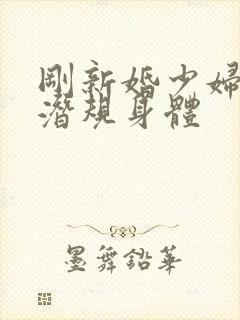 剛新婚少婦
潛規身體
墨舞鉛華